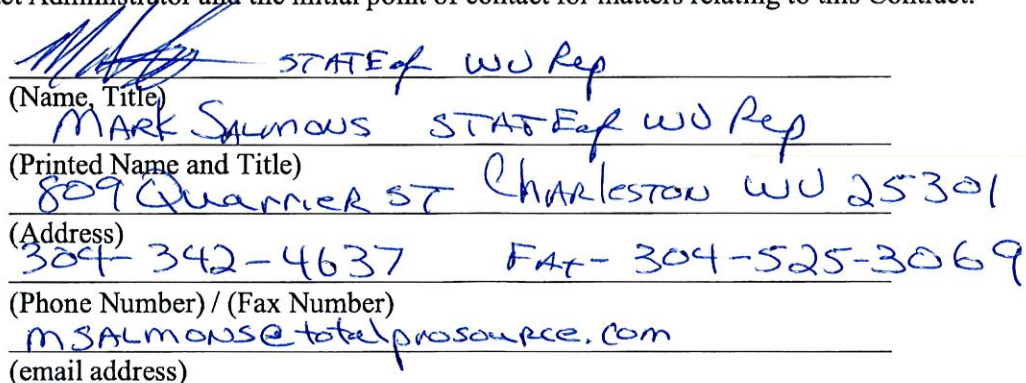 ct Administrator and the initial point of contact for matters relating to this Contract.
STATE of WV Rep
(Name, Title)
MARK SALMONS STATE of WV Rep
(Printed Name and Title)
809 Quarrier ST Charleston WV 25301
(Address)
304-342-4637 FAX- 304-525-3069
(Phone Number) / (Fax Number)
mSALMONS@totalprosource.com
(email address)